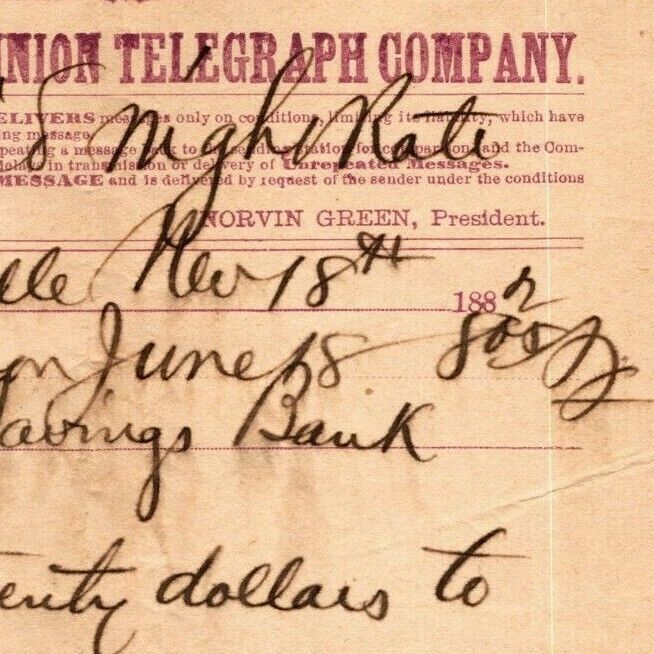 UNION TELEGRAPH COMPANY.
DELIVERS messages only on conditions, limiting its liability, which have
ing message.
peating a message back to the sending station for comparison, and the Com-
delays in transmission or delivery of Unrepeated Messages.
MESSAGE and is delivered by request of the sender under the conditions
Night Rate
NORVIN GREEN, President.
lle Nov 18th 1882
on June 18
Savings Bank
enty dollars to